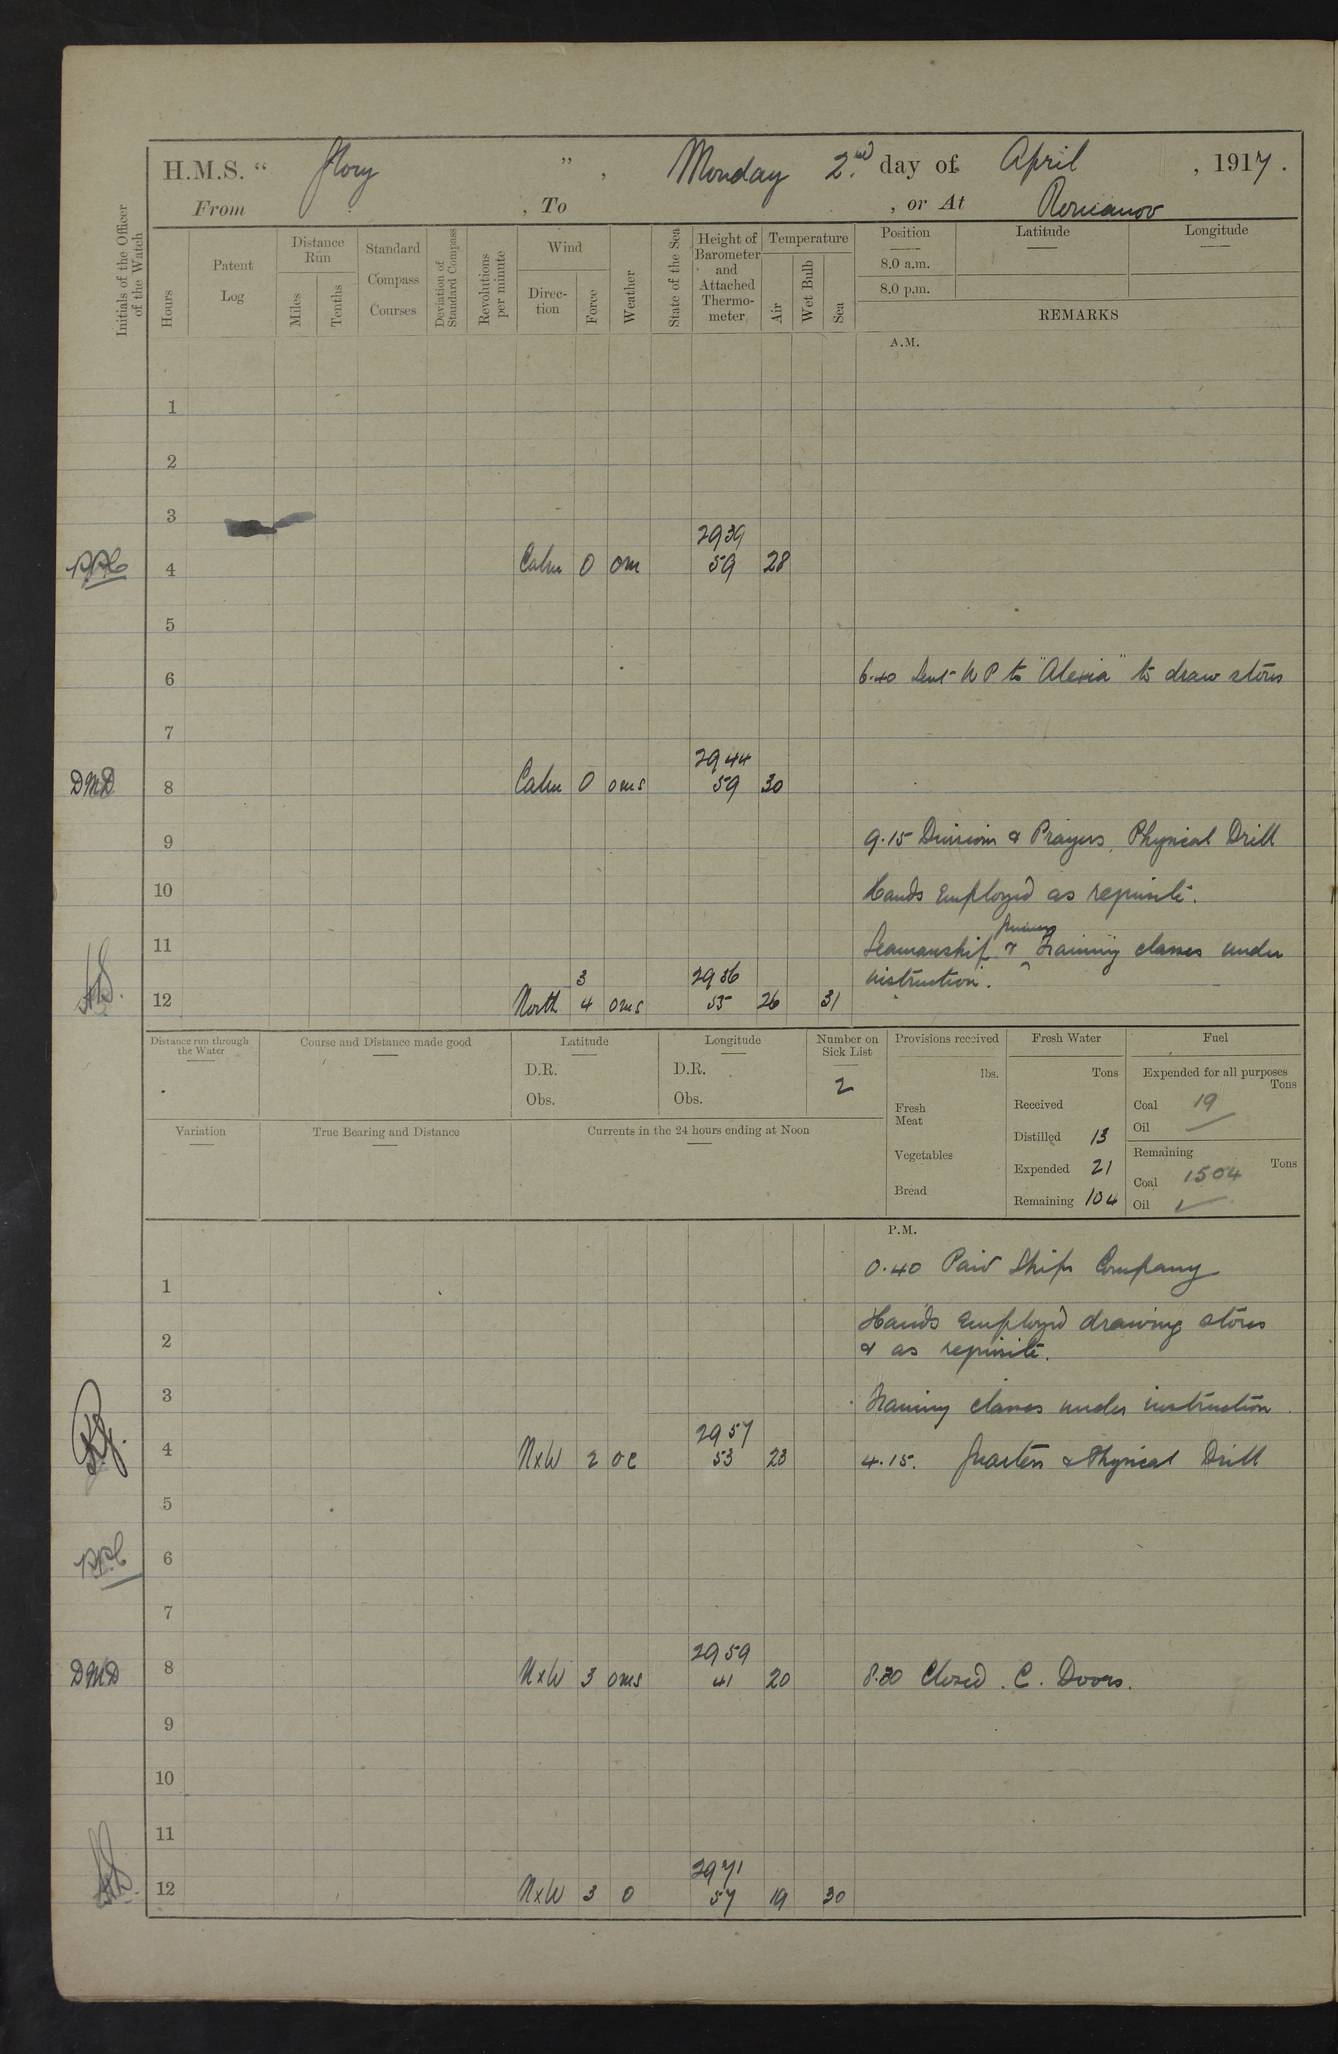 H.M.S. “ Glory ”, Monday 2nd day of April, 1917.
From , To , or At Romanov
Initials of the Officer of the Watch
Hours
Patent Log
Distance Run
Miles
Tenths
Standard Compass Courses
Deviation of Standard Compass
Revolutions per minute
Wind
Direc-tion
Force
Weather
State of the Sea
Height of Barometer and Attached Thermo-meter
Temperature
Air
Wet Bulb
Sea
Position
8.0 a.m.
8.0 p.m.
Latitude
Longitude
REMARKS
A.M.
1
2
3
2939
4 Calm 0 om 59 28
5
6 6.40 Sent W P to "Alexia" to draw stores
7
2944
DMD 8 Calm 0 oms 59 30
9 9.15 Divisions & Prayers, Physical Drill
10 Hands Employed as requisite.
11 Seamanship & Training classes under
3 2956 instruction.
12 North 4 oms 55 26 31
Distance run through the Water
Course and Distance made good
Latitude
D.R.
Obs.
Longitude
D.R.
Obs.
Number on Sick List
2
Provisions received
lbs.
Fresh Meat
Vegetables
Bread
Fresh Water
Tons
Received
Distilled 13
Expended 21
Remaining 104
Fuel
Expended for all purposes
Tons
Coal 19
Oil
Remaining
Tons
Coal 1504
Oil
Variation
True Bearing and Distance
Currents in the 24 hours ending at Noon
P.M.
0.40 Paid Ships Company
1
Hands Employed drawing stores
2 & as requisite.
3 Training classes under instruction.
2957
4 NxW 2 oc 53 23 4.15. Quarters & Physical Drill
5
6
7
2959
DMD 8 NxW 3 oms 41 20 8.30 Closed. C. Doors.
9
10
11
2971
12 NxW 3 o 57 19 30